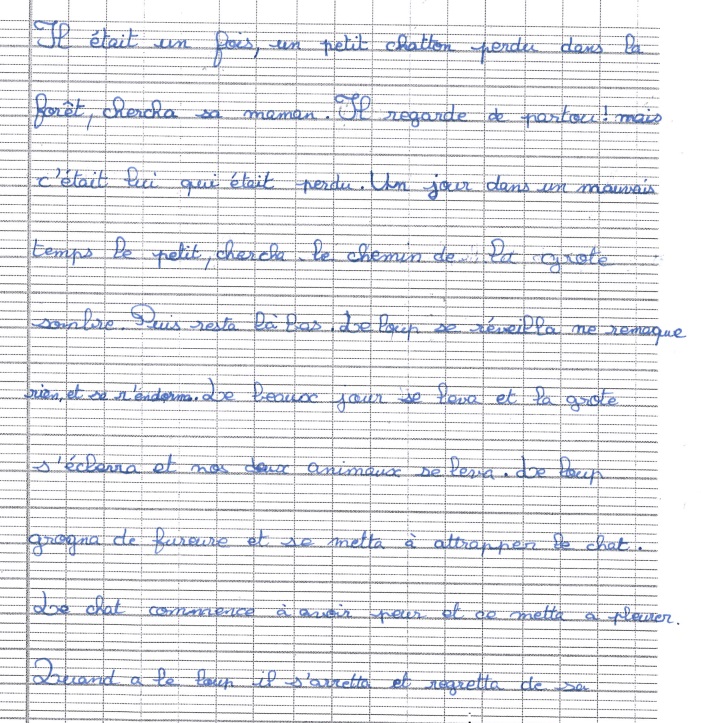 Il était un fois, un petit chatton perdu dans la
forêt, chercha sa maman. Il regarde de partou! mais
c'était lui qui était perdu. Un jour dans un mauvais
temps le petit, chercha le chemin de la grote
sombre. Puis resta là bas. Le loup se réveilla ne remaque
rien, et se r'endorma. Le beaux jour se leva et la grote
s'éclerra et nos deux animaux se leva. Le loup
grogna de fureure et se metta à attrapper le chat.
Le chat commence à avoir peur et ce metta a pleurer.
Quand a le loup il s'arretta et regretta de sa